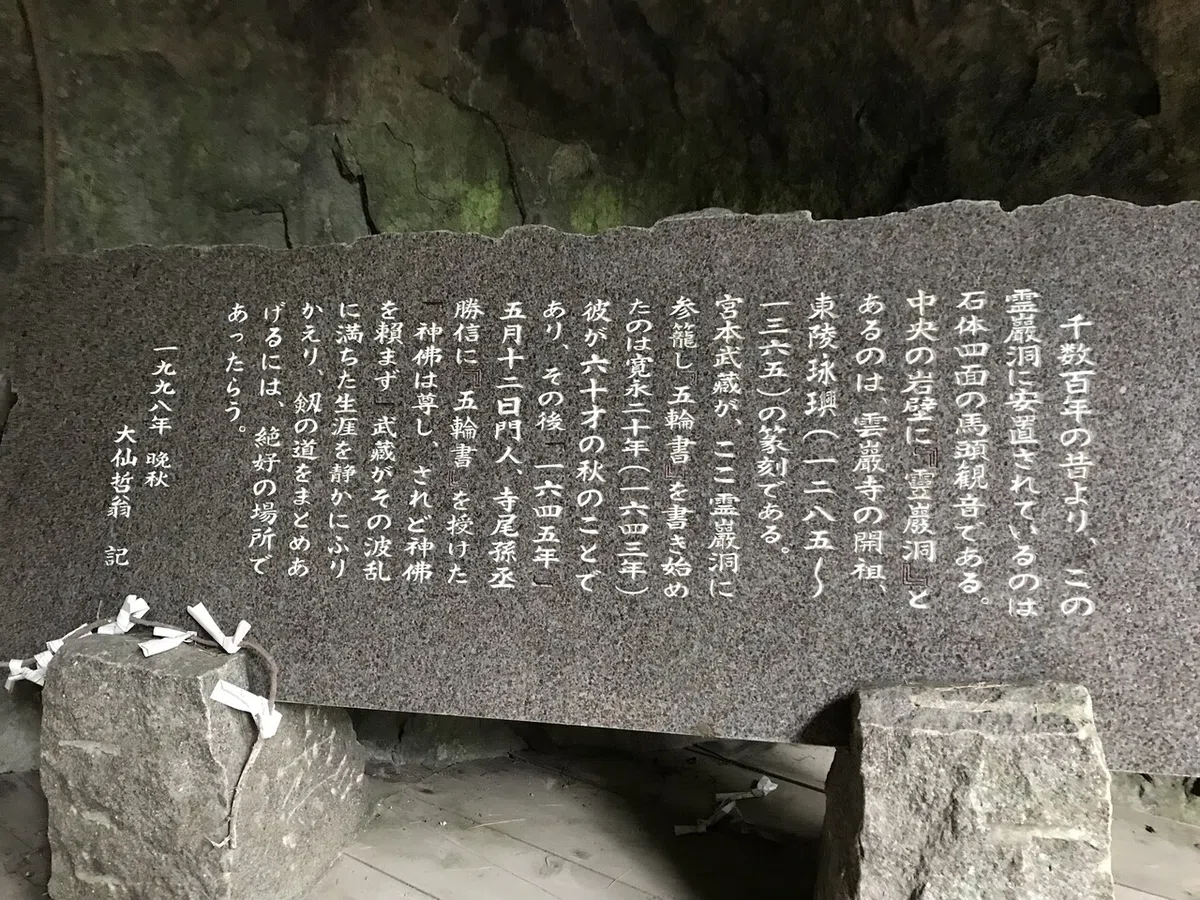 千数百年の昔より、この
霊巖洞に安置されているのは
石体四面の馬頭観音である。
中央の岩壁に『霊巖洞』と
あるのは、雲巖寺の開祖、
東陵永璵(一二八五〜
一三六五)の篆刻である。
宮本武蔵が、ここ霊巖洞に
参籠し『五輪書』を書き始め
たのは寛永二十年(一六四三年)
彼が六十才の秋のことで
あり、その後「一六四五年」
五月十二日門人、寺尾孫丞
勝信に『五輪書』を授けた
「神佛は尊し、されど神佛
を頼まず」武蔵がその波乱
に満ちた生涯を静かにふり
かえり、剱の道をまとめあ
げるには、絶好の場所で
あったらう。
一九九八年 晩秋
大仙哲翁 記